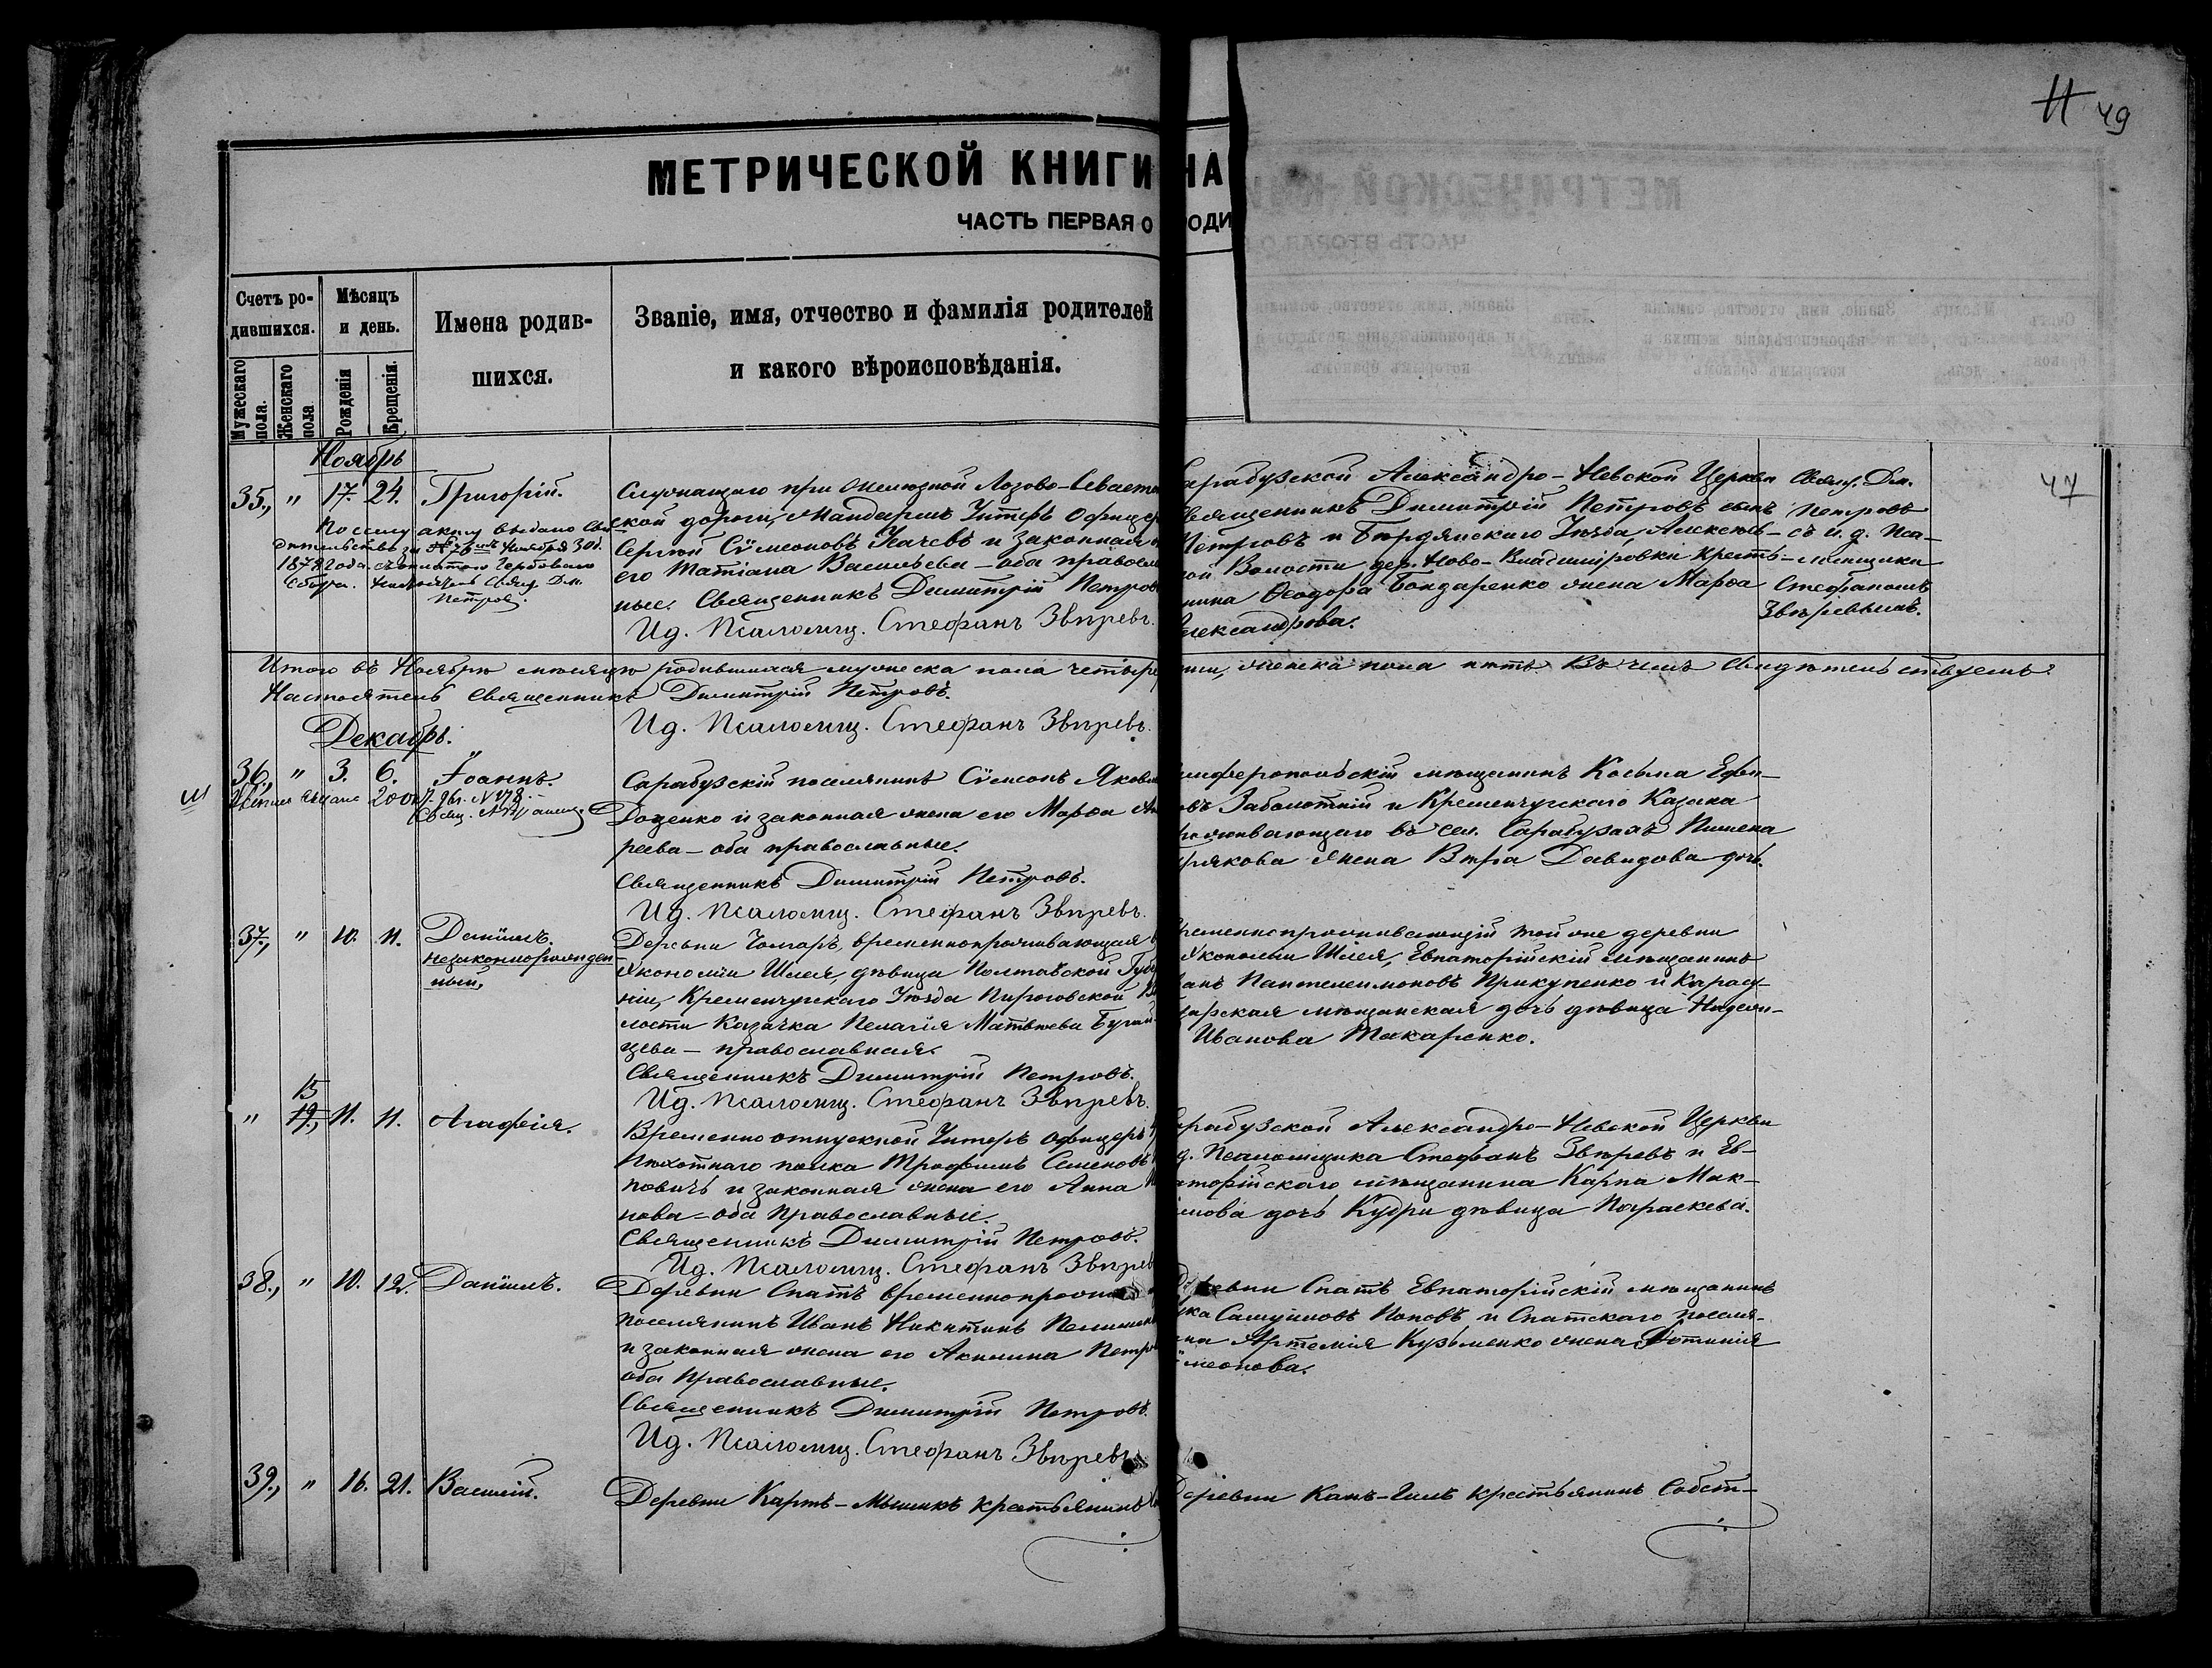 49
МЕТРИЧЕСКОЙ КНИГИ НА
ЧАСТЬ ПЕРВАЯ О РОДИ
Счетъ ро-
дившихся.
Мужескаго пола.
Женскаго пола
Мѣсяцъ
и день.
Рожденія
Крещенія.
Имена родив-
шихся.
Званіе, имя, отчество и фамилія родителей
и какого вѣроисповѣданія.
47
Ноябрь
35., " 17. 24. Григорій.
По сему акту выдано Сви
1878 года
Служащаго при желѣзной Лозово-Севасто
ской дороги, Унтеръ Офицер
Сергѣй Сѵмеоновъ и законная
его Татіана Васильева - оба православ
ные. Священникъ Димитрій Петровъ
Ид. Псаломщ. Стефанъ Звѣревъ.
Сарабузской Александро-Невской Церкви
Священникъ Димитрій Петровъ сынъ
Петровъ и Бердянскаго Уѣзда, Алексѣев-
ской Волости дер. Ново-Владиміровки кресть-
янина Ѳеодора Бондаренко жена Марѳа
Александрова.
Свящ. Дим.
Петровъ
съ и. д. Пса-
ломщика
Стефаномъ
Звѣревымъ.
Итого въ Ноябрѣ мѣсяцѣ родившихся мужеска пола четыре
женска пола пять. Въ чемъ свидѣтельствуемъ:
Настоятель Священникъ Димитрій Петровъ.
Ид. Псаломщ. Стефанъ Звѣревъ.
Декабрь.
36., " 3. 6. Іоаннъ.
Сарабузскій поселянинъ Сѵмеонъ Яковл
Доценко и законная жена его Марѳа Ан
реева - оба православные.
Священникъ Димитрій Петровъ.
Ид. Псаломщ. Стефанъ Звѣревъ.
Симферопольскій мѣщанинъ Косьма Ефи-
мовъ Заболотній и Кременчугскаго Казака
проживающаго въ сел. Сарабузахъ Пимена
жена Вѣра Давидова дочь.
37., " 10. 11. Даніилъ.
незаконнорожден-
ный,
Деревни временнопроживающая
Экономіи Шлея, дѣвица Полтавской Губер
ніи, Кременчугскаго Уѣзда Пироговской Во
лости Казачка Пелагія Матвѣева
цева - православная.
Священникъ Димитрій Петровъ.
Ид. Псаломщ. Стефанъ Звѣревъ.
временнопроживающій той же деревни
Экономіи Шлея, Евпаторійскій мѣщанинъ
Пантелеимоновъ Прикупенко и Карасу-
базарская мѣщанская дочь дѣвица Надеж-
Иванова Макаренко.
15
" 19., 11. 11. Агафія.
Временно отпускной Унтеръ Офицеръ
Пѣхотнаго полка Трофимъ Семеновъ
повичъ и законная жена его Анна
нова - оба Православные.
Священникъ Димитрій Петровъ.
Ид. Псаломщ. Стефанъ Звѣревъ
Сарабузской Александро-Невской Церкви
и. д. Псаломщика Стефанъ Звѣревъ и Ев-
паторійскаго мѣщанина Карпа Мак-
симова дочь Кудри дѣвица Параскева.
38., " 10. 12. Даніилъ.
Деревни Спатъ временнопрожив
поселянинъ Иванъ Никитинъ
и законная жена его Акилина Петро
оба Православные.
Священникъ Димитрій Петровъ.
Ид. Псаломщ. Стефанъ Звѣревъ
Деревни Спатъ Евпаторійскій мѣщанинъ
Самуиловъ Поповъ и Спатскаго поселя-
нина Артемія Кузьменко жена Фотинія
Сѵмеонова.
39., " 16. 21. Василій.
Деревни Картъ-Мышикъ крестьянинъ
Деревни крестьянинъ Собст-